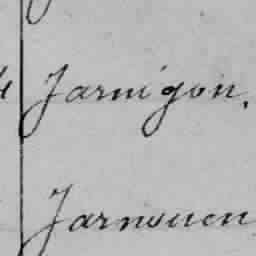 Jarnigon.
Jarnouen